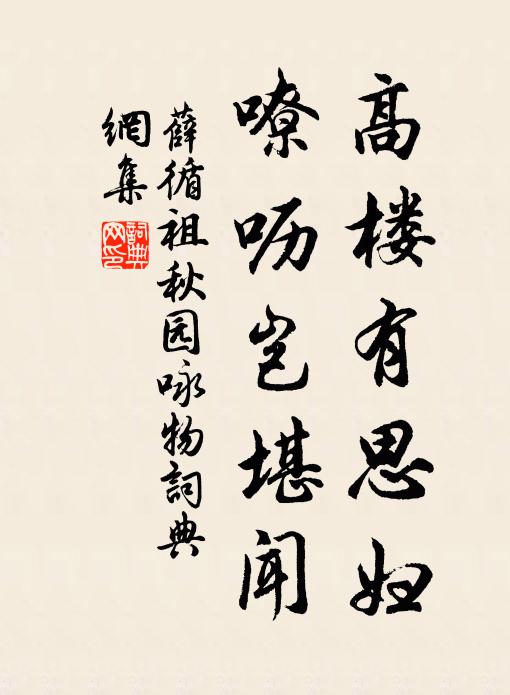 高楼有思妇
嘹呖岂堪闻
薛循祖秋园咏物詞典
網集
詞典
网印